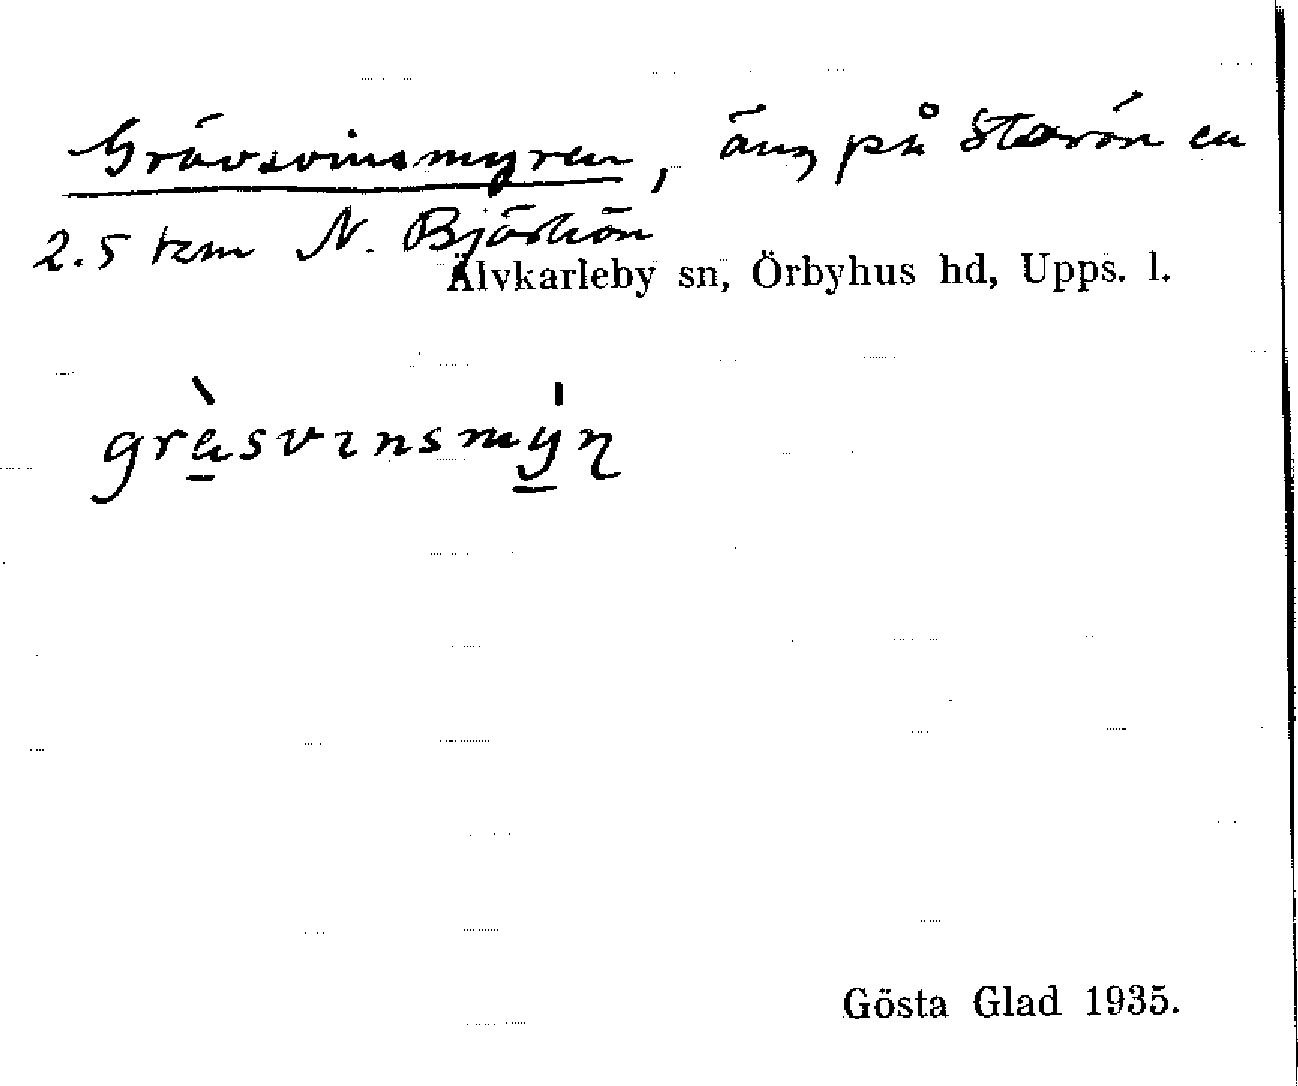 Grävsvinsmyren, äng på Storön ca
2.5 km N. Björkön
Älvkarleby sn, Örbyhus hd, Upps. l.
gràsvinsmýn
Gösta Glad 1935.